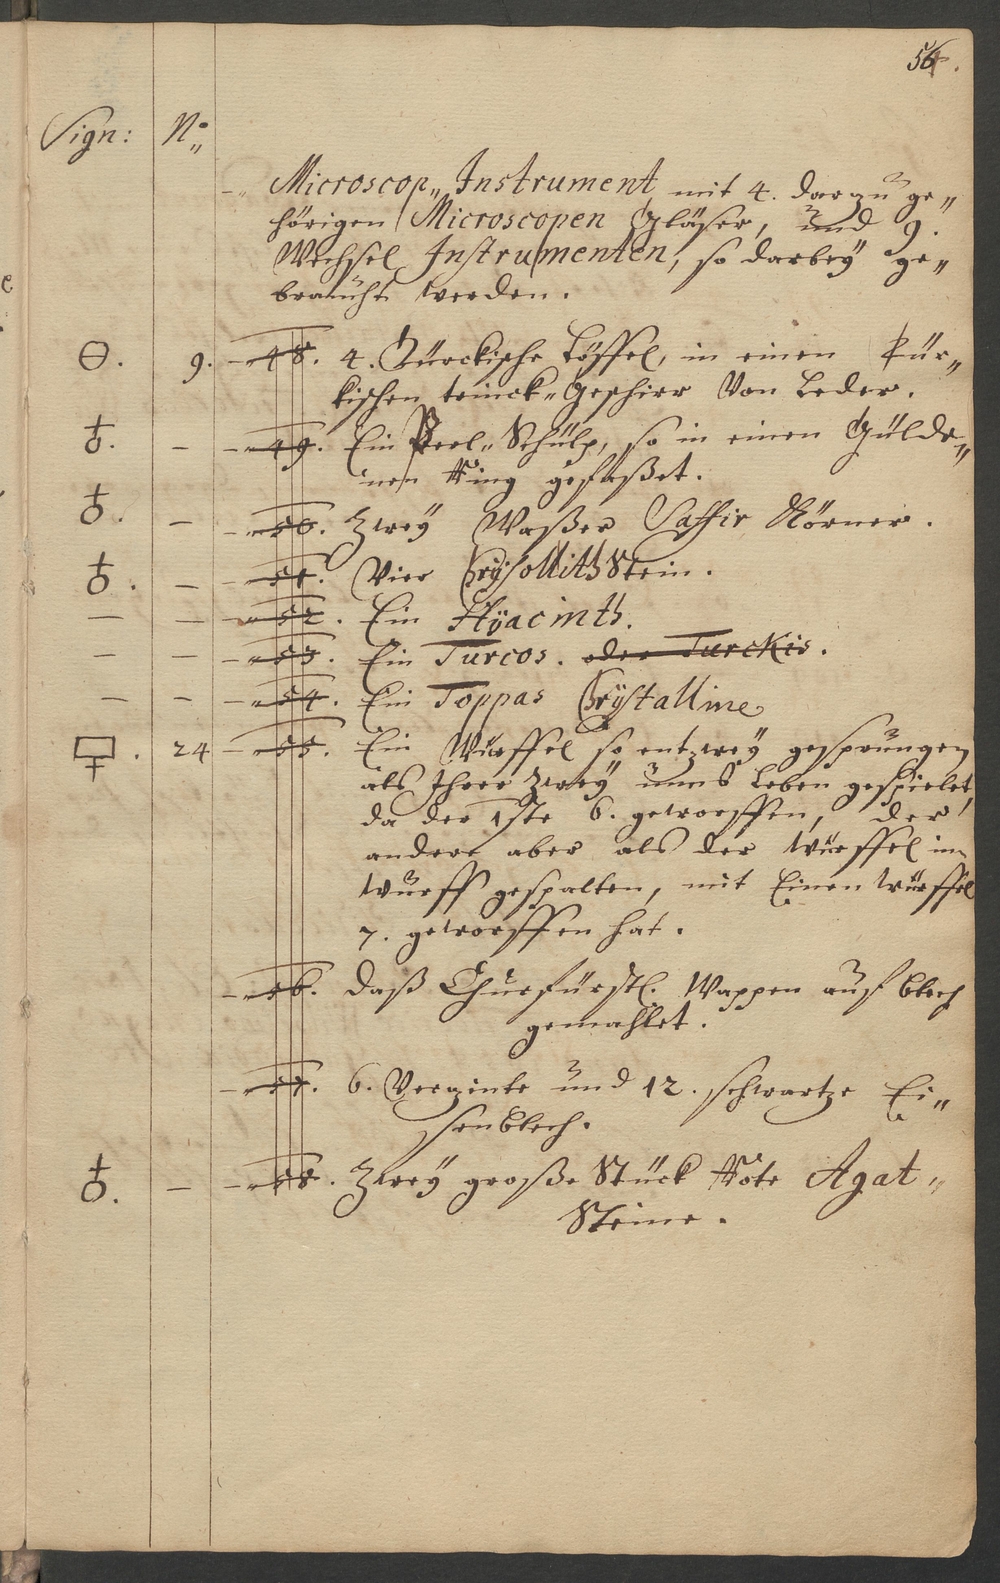 56.
Sign: No„
Microscop„ Instrument mit 4. darzu ge„
hörigen Microscopen Gläser, und 9.
Wechsel Instrumenten, so darbeÿ ge„
braucht werden.
⊖. 9. 48. 4. Türckische Löffel, in einen Tür„
kischen trinck„Geschirr von Leder.
♁. – 49. Ein Perl„Schülp, so in einen Gülde„
nen Ring gefaßet.
♁. – 50. Zweÿ Waßer Saffir Körner.
♁. – 51. Vier Crÿsollith Stein.
– – 52. Ein Hÿacinth.
– – 53. Ein Turcos. oder Turckis.
– – 54. Ein Toppas Crÿstalline
24 55. Ein Würffel so entzweÿ gesprungen
als Ihrer Zweÿ ums Leben gespielet,
da der 1ste 6. geworffen, der
andere aber als der Würffel im
Wurff gespalten, mit Einen Würffel
7. geworffen hat.
56. Daß Churfürstl. Wappen auf blech
gemahlet.
57. 6. Verzinte und 12. schwartze Ei„
senblech.
♁. – 58. Zweÿ große Stück Rote Agat„
Steine.